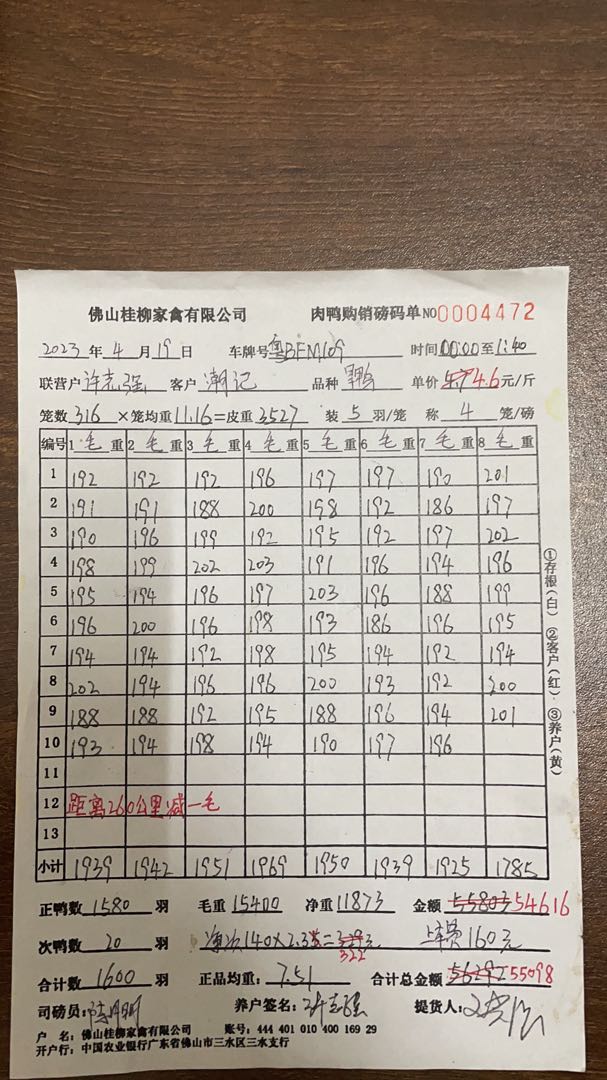 佛山桂柳家禽有限公司 肉鸭购销磅码单 NO 0004472
2023 年 4 月 19 日 车牌号 粤BFM109 时间 00:00 至 1:40
联营户 许志强 客户 潮记 品种 鸭 单价 4.6 元/斤
笼数 316 ×笼均重 11.16 =皮重 3527 装 5 羽/笼 称 4 笼/磅
编号 1 毛 重 2 毛 重 3 毛 重 4 毛 重 5 毛 重 6 毛 重 7 毛 重 8 毛 重
1 192 192 192 196 197 197 190 201
2 191 191 188 200 198 192 186 197
3 190 196 199 192 195 192 197 202
4 198 199 202 203 191 196 194 196
5 195 194 196 197 203 196 188 199
6 196 200 196 198 193 186 196 195
7 194 194 192 198 195 194 192 194
8 202 194 196 196 200 193 192 200
9 188 188 192 195 188 196 194 201
10 193 194 198 194 190 197 196
11
12 距离260公里减一毛
13
小计 1939 1942 1951 1969 1950 1939 1925 1785
正鸭数 1580 羽 毛重 15400 净重 11873 金额 55803 54616
次鸭数 20 羽 净次140×2.3 = 元 322 160元
合计数 1600 羽 正品均重: 7.51 合计总金额 56292 55098
司磅员: 养户签名: 许志强 提货人:
户 名: 佛山桂柳家禽有限公司 账号: 444 401 010 400 169 29
开户行: 中国农业银行广东省佛山市三水区三水支行
①存根(白) ②客户(红) ③养户(黄)